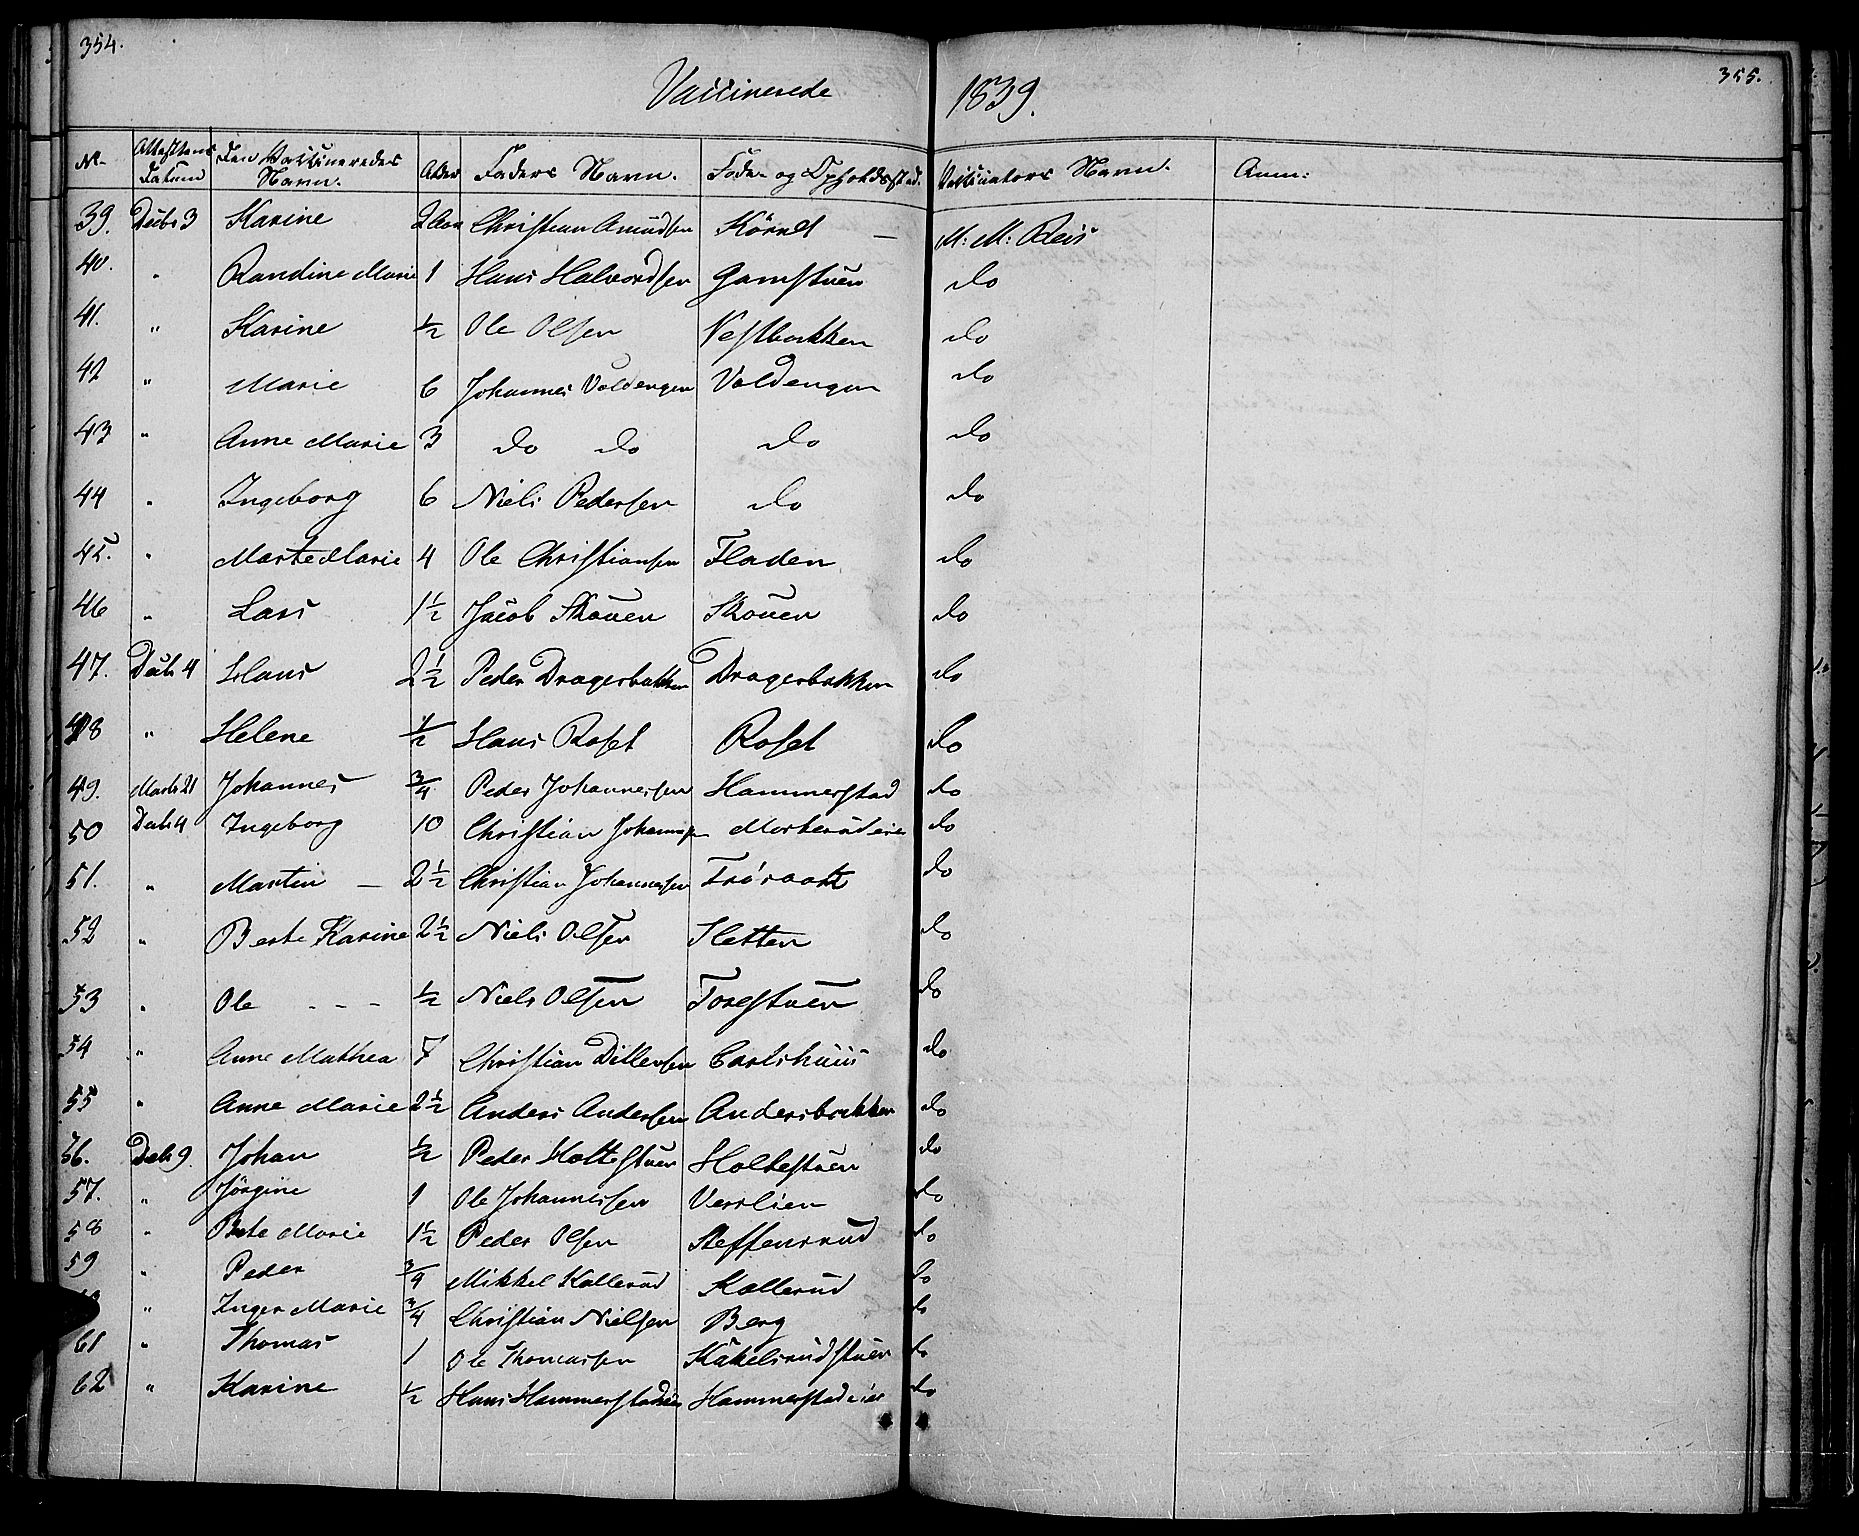 354.
355.
Vaccinerede 1839.
No Attestens Datum Den Vaccineredes Navn. Alder Faders Navn. Føde- og Opholdssted. Vaccinators Navn. Anm:
39. Decbr 3 Karine 2 Aar Christian Amundsen Körnet - M: M: Reis
40. " Randine Marie 1 Hans Halvordsen Gamstuen do
41. " Karine ½ Ole Olsen Vestbakken do
42 " Marie 6 Johannes Voldengen Voldengen do
43 " Anne Marie 3 do do do do
44 " Ingeborg 6 Niels Pedersen do do
45. " Marte Marie 4 Ole Christiansen Fladen do
46 " Lars 1½ Jacob Skouen Skouen do
47. Decbr 4 Hans 2½ Peder Dragerbakken Dragerbakken do
48 " Helene ½ Hans Roset Roset do
49. Marts 21 Johannes ¾ Peder Johannessen Hammerstad do
50 Decbr 4 Ingeborg 10 Christian Johannes. Morterudeie do
51. " Martin - 2½ Christian Johannessen do
52 " Berte Karine 2½ Niels Olsen Sletten do
53 " Ole - - - ½ Niels Olsen Torestuen do
54 " Anne Mathea 7 Christian Ditlevsen Carlshuus do
55 " Anne Marie 2½ Anders Andersen Andersbakken do
56. Decbr 9. Johan ½ Peder Holtestuen Holtestuen do
57. " Jörgine 1 Ole Johannessen Verslien do
58 " Berte Marie 1½ Peder Olsen Steffensrud do
59 " Peder ¾ Mikkel Kallerud Kallerud do
" Inger Marie ¾ Christian Nielsen Berg do
61 " Thomas 1 Ole Thomassen Kükelsrudstuen do
62 " Karine ½ Hans Hammerstadeie Hammerstadeie do